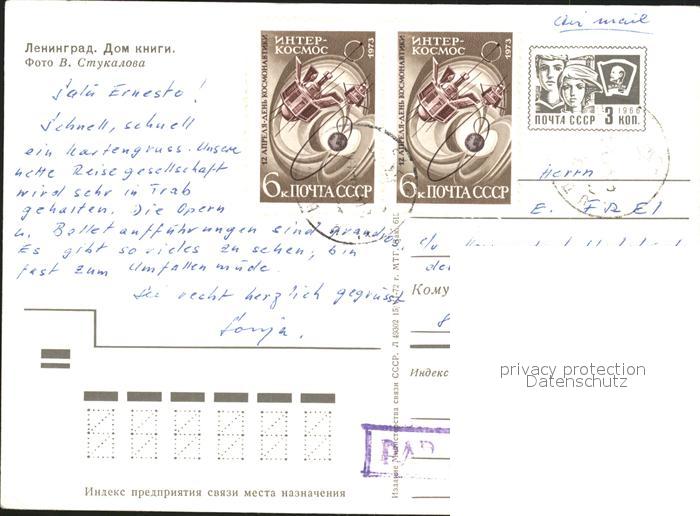 Ленинград. Дом книги.
Фото В. Стукалова
Salü Ernesto!
Schnell, schnell
ein Kartengruss. Unsere
nette Reisegesellschaft
wird sehr in Trab
gehalten. Die Opern
u. Balletaufführungen sind grandios
Es gibt so vieles zu sehen, bin
fast zum Umfallen müde.
Sei recht herzlich gegrüsst
Sonja.
Индекс предприятия связи места назначения
Издание Министерства связи СССР. Л 49302 15/VI-72 г. МТГ.
12 АПРЕЛЯ-ДЕНЬ КОСМОНАВТИКИ
ИНТЕР-
КОСМОС
1973
6к ПОЧТА СССР
12 АПРЕЛЯ-ДЕНЬ КОСМОНАВТИКИ
ИНТЕР-
КОСМОС
1973
6к ПОЧТА СССР
Air mail
1966
ПОЧТА СССР 3 КОП.
Herrn
E. FREI
c/o
Кому
Индекс
PAR
privacy protection
Datenschutz